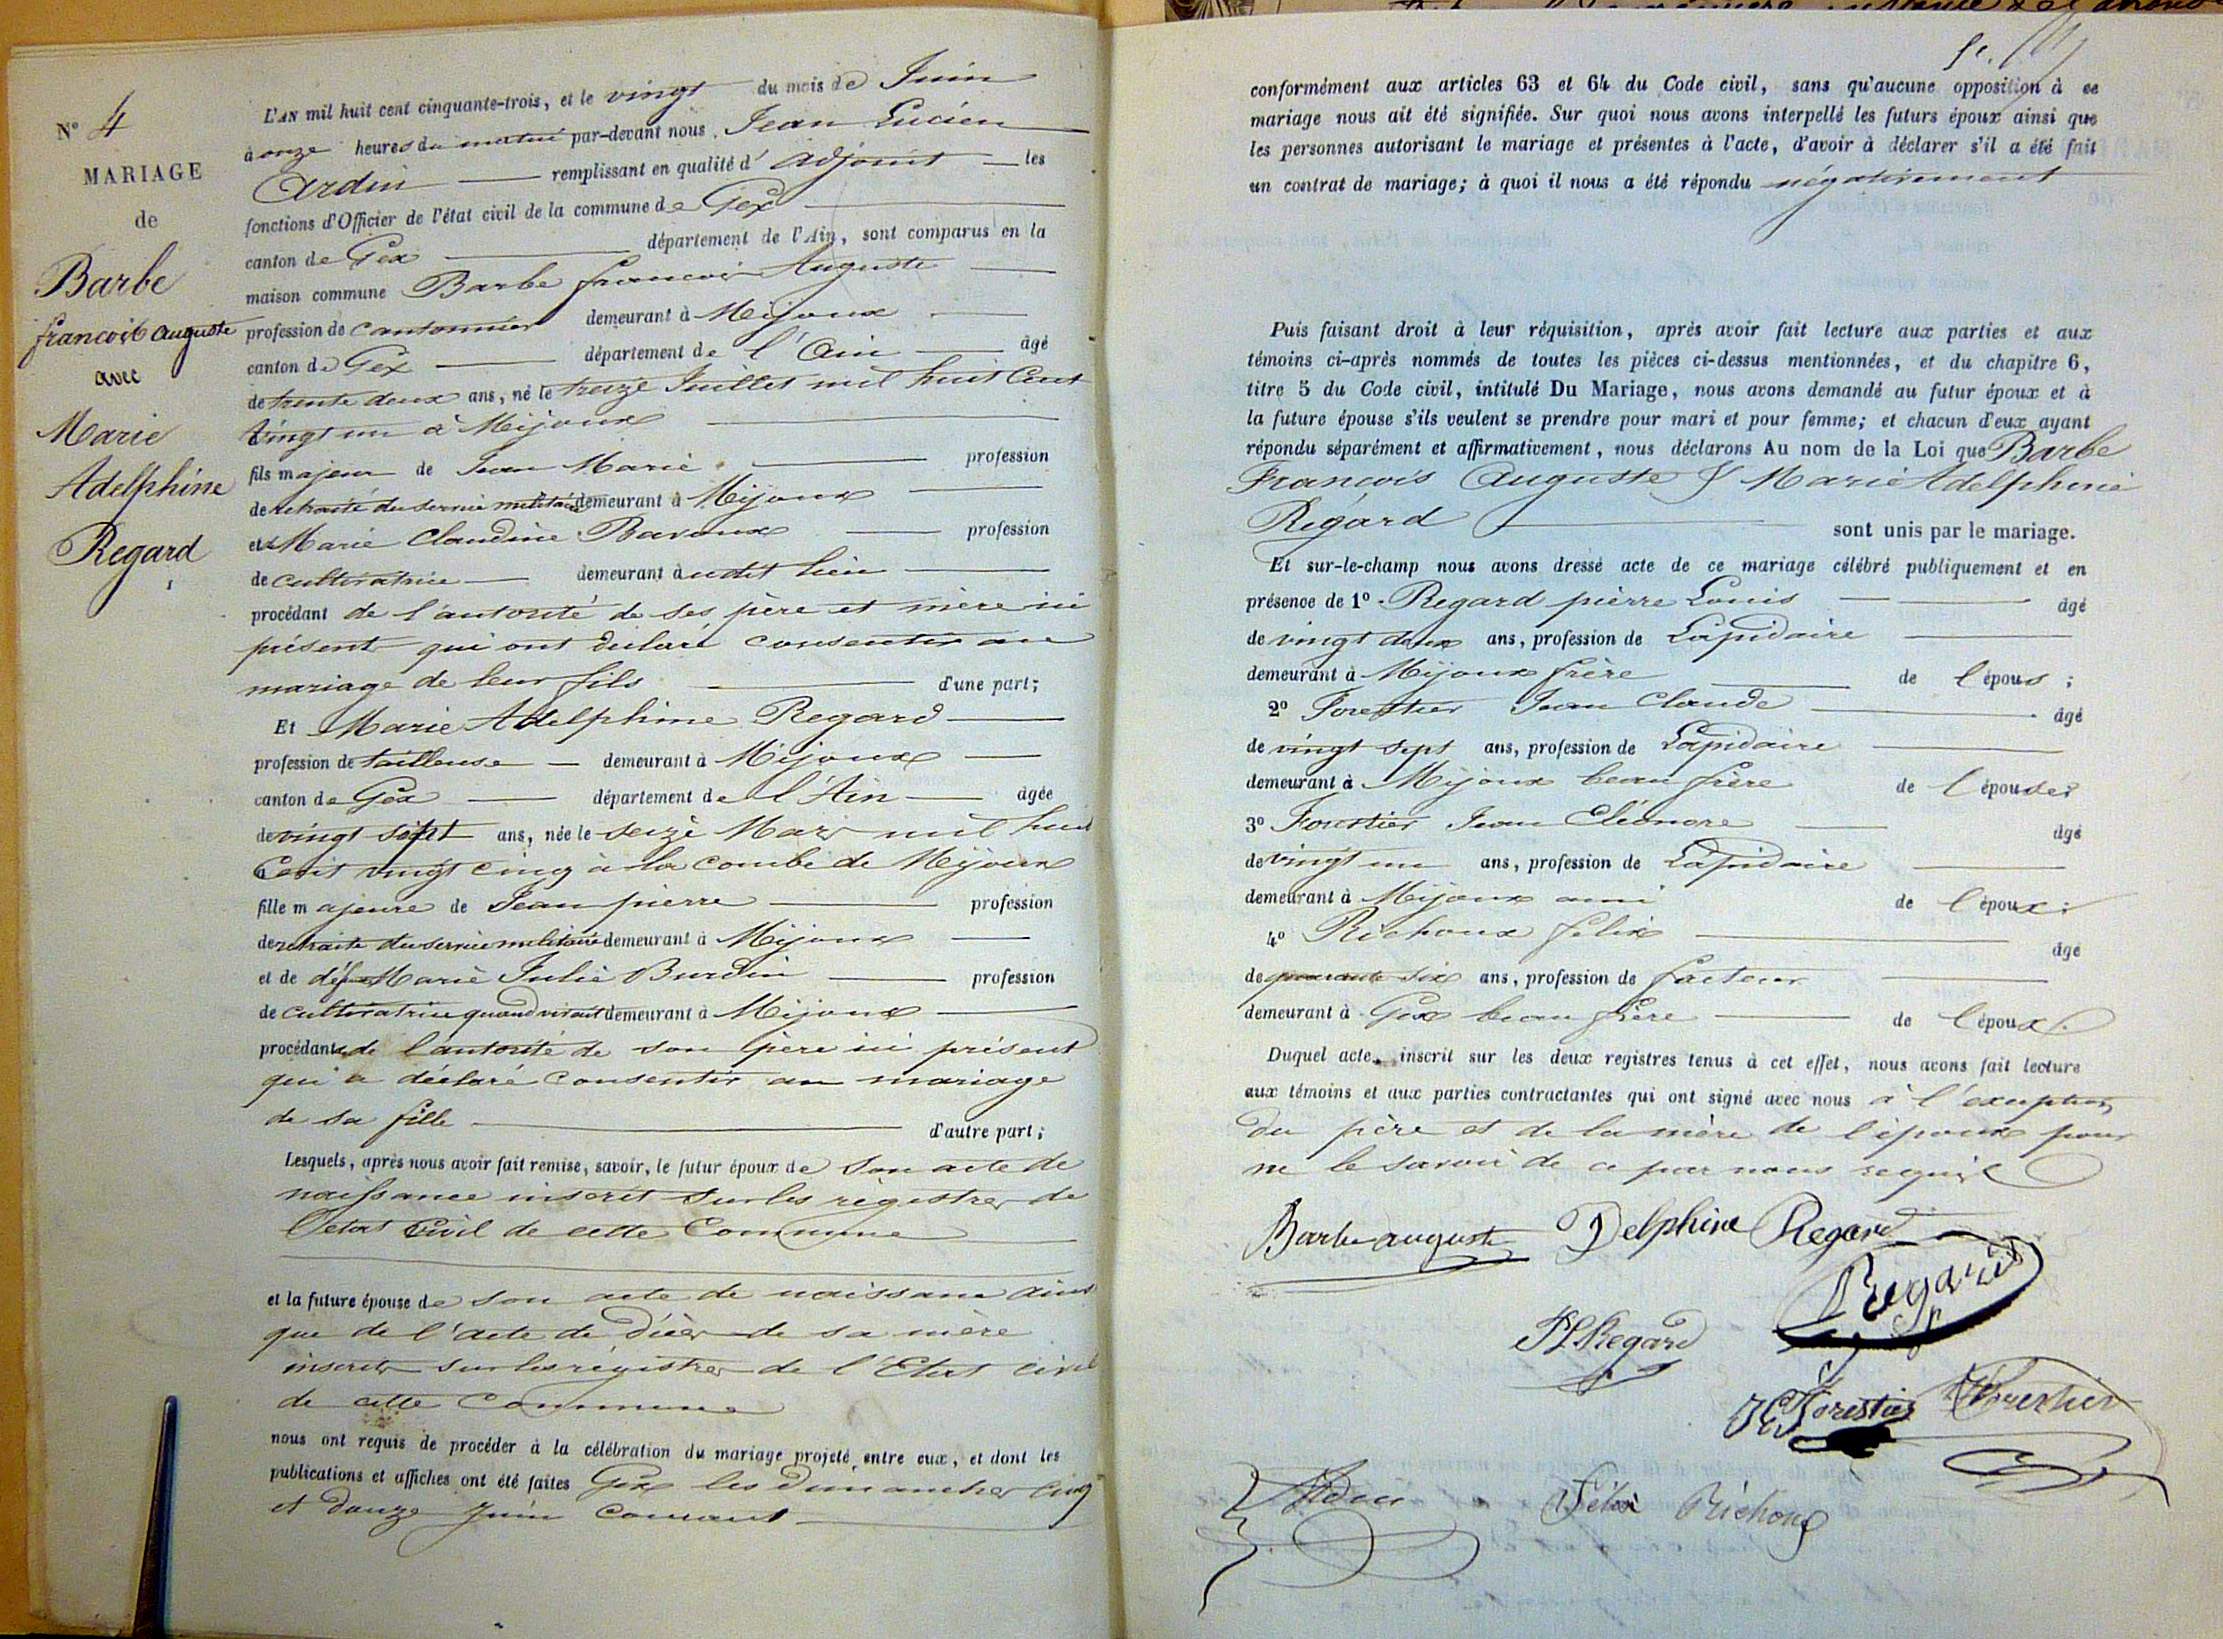 N° 4
MARIAGE
de
Barbe
francois auguste
avec
Marie
Adelphine
Regard
L'AN mil huit cent cinquante-trois, et le vingt du mois de Juin
à onze heures du matin par-devant nous Jean Lucien
Ardin remplissant en qualité d'adjoint les
fonctions d'Officier de l'état civil de la commune de Gex
canton de Gex département de l'Ain, sont comparus en la
maison commune Barbe francois Auguste
profession de cantonnier demeurant à Mijoux
canton de Gex département de l'Ain âgé
de trente deux ans, né le treize Juillet mil huit Cent
vingt un à Mijoux
fils majeur de Jean Marie profession
de retraité du service militaire demeurant à Mijoux
et Marie Claudine Bavoux profession
de cultivatrice demeurant audit lieu
procédant de l'autorité de ses père et mère ici
présent qui ont déclaré consentir au
mariage de leur fils d'une part;
Et Marie Adelphine Regard
profession de tailleuse demeurant à Mijoux
canton de Gex département de l'Ain âgée
de vingt sept ans, née le seize Mars mil huit
Cent vingt cinq à la combe de Mijoux
fille majeure de Jean pierre profession
de retraite du service militaire demeurant à Mijoux
et de défte Marie Julie Burdin profession
de cultivatrice quand vivait demeurant à Mijoux
procédante de l'autorité de son père ici présent
qui a déclaré consentir au mariage
de sa fille d'autre part;
Lesquels, après nous avoir fait remise, savoir, le futur époux de son acte de
naissance inscrit sur les régistres de
l'etat Civil de cette Commune
et la future épouse de son acte de naissance ainsi
que de l'acte de décès de sa mère
inscrits sur les régistres de l'Etat civil
de cette Commune
nous ont requis de procéder à la célébration du mariage projeté entre eux, et dont les
publications et affiches ont été faites Gex les dimanches cinq
et douze Juin courant
conformément aux articles 63 et 64 du Code civil, sans qu'aucune opposition à ce
mariage nous ait été signifiée. Sur quoi nous avons interpellé les futurs époux ainsi que
les personnes autorisant le mariage et présentes à l'acte, d'avoir à déclarer s'il a été fait
un contrat de mariage; à quoi il nous a été répondu négativement
Puis faisant droit à leur réquisition, après avoir fait lecture aux parties et aux
témoins ci-après nommés de toutes les pièces ci-dessus mentionnées, et du chapitre 6,
titre 5 du Code civil, intitulé Du Mariage, nous avons demandé au futur époux et à
la future épouse s'ils veulent se prendre pour mari et pour femme; et chacun d'eux ayant
répondu séparément et affirmativement, nous déclarons Au nom de la Loi que Barbe
François Auguste & Marie Adelphine
Regard sont unis par le mariage.
Et sur-le-champ nous avons dressé acte de ce mariage célébré publiquement et en
présence de 1° Regard pierre Louis âgé
de vingt deux ans, profession de Lapidaire
demeurant à Mijoux frère de l'épous ;
2° Forestier Jean Claude âgé
de vingt sept ans, profession de Lapidaire
demeurant à Mijoux beau frère de l'épouse;
3° Forestier Jean Eléonore âgé
de vingt un ans, profession de Lapidaire
demeurant à Mijoux ami de l'époux;
4° Richoux felix âgé
de quarante six ans, profession de facteur
demeurant à Gex beau frère de l'époux.
Duquel acte, inscrit sur les deux registres tenus à cet effet, nous avons fait lecture
aux témoins et aux parties contractantes qui ont signé avec nous à l'exception
du père et de la mère de l'époux pour
ne le savoir de ce par nous requis
Barbe auguste Delphine Regard
Regard
PL Regard
JC Forestier Forestier
Ardin Félix Richoux